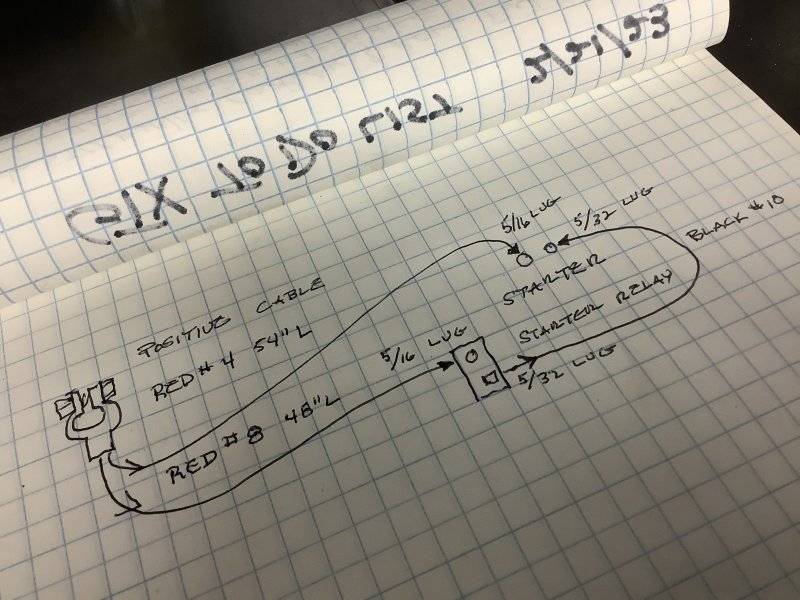 GTX TO DO LIST
5/16 LUG
5/32 LUG
BLACK #10
STARTER
POSITIVE CABLE
RED #4 54"L
STARTER RELAY
5/16 LUG
5/32 LUG
RED #8 48"L